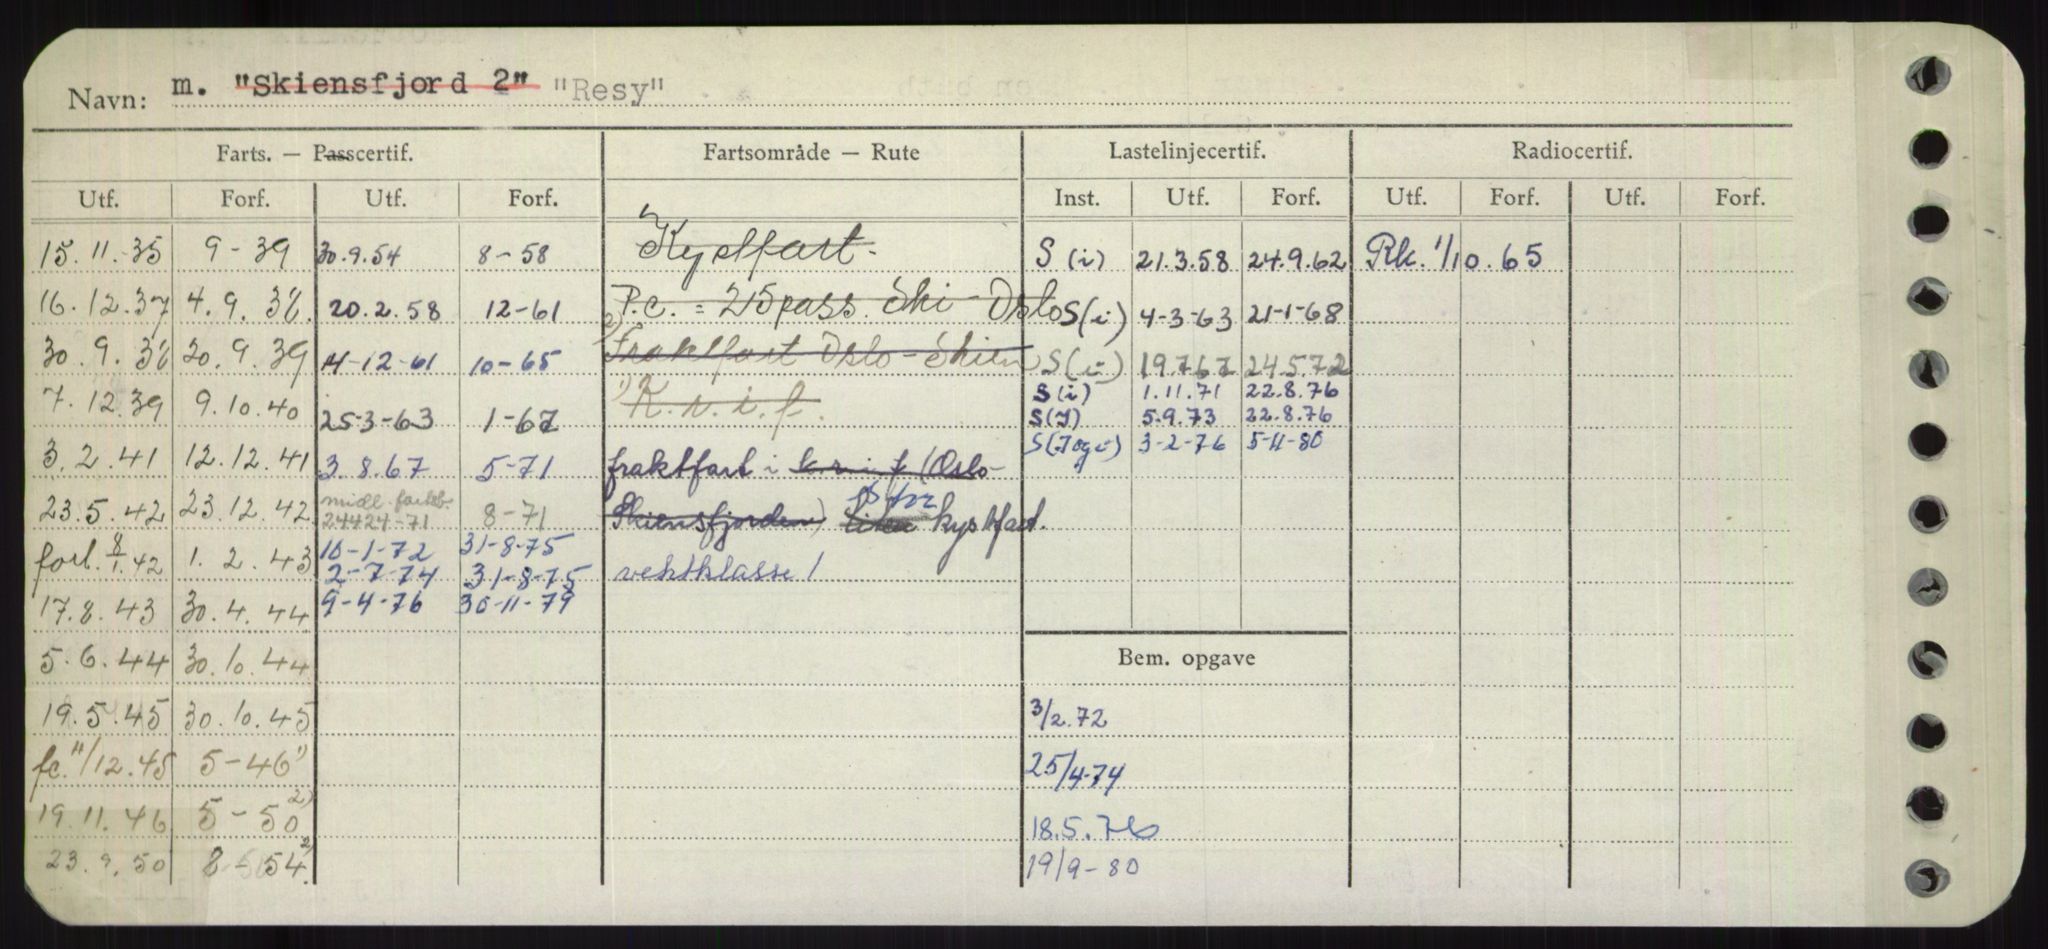 Navn: m. "Skiensfjord 2" "Resy"
Farts. — Passcertif. Fartsområde — Rute Lastelinjecertif. Radiocertif.
Utf. Forf. Utf. Forf. Inst. Utf. Forf. Utf. Forf. Utf. Forf.
15.11.35 9-39 30.9.54 8-58 Kystfart. S (i) 21.3.58 24.9.62 Rk. 1/10.65
16.12.37 4.9.38. 20.2.58 12-61 P.c. = 215 pass. Ski-Oslo S(i) 4-3-63 21-1-68
30.9.38 20.9.39 14-12-61 10-65 2) Fraktfart Oslo-Skien S(i) 19.7.67 24.5.72
7.12.39 9.10.40 25-3-63 1-67 1) K.v.i.f. S(i) 1.11.71 22.8.76
S(J) 5.9.73 22.8.76
3.2.41 12.12.41 3.8.67 5-71 fraktfart i k.v.i.f (Oslo- S(J og i) 3-2-76 5-11-80
23.5.42 23.12.42 midl. 24-71 8-71 Skiensfjorden) kystfart.
forl. 8/1.42 1.2.43 10-1-72 31-8-75
2-7-74 31-8-75 vektklasse 1
17.8.43 30.4.44 9-4-76 30-11-79
5.6.44 30.10.44 Bem. opgave
19.5.45 30.10.45 3/2.72
fc. 11/12.45 5-46 1) 25/4-74
19.11.46 5-50 2) 18.5.76
23.9.50 8-54 2) 19/9-80